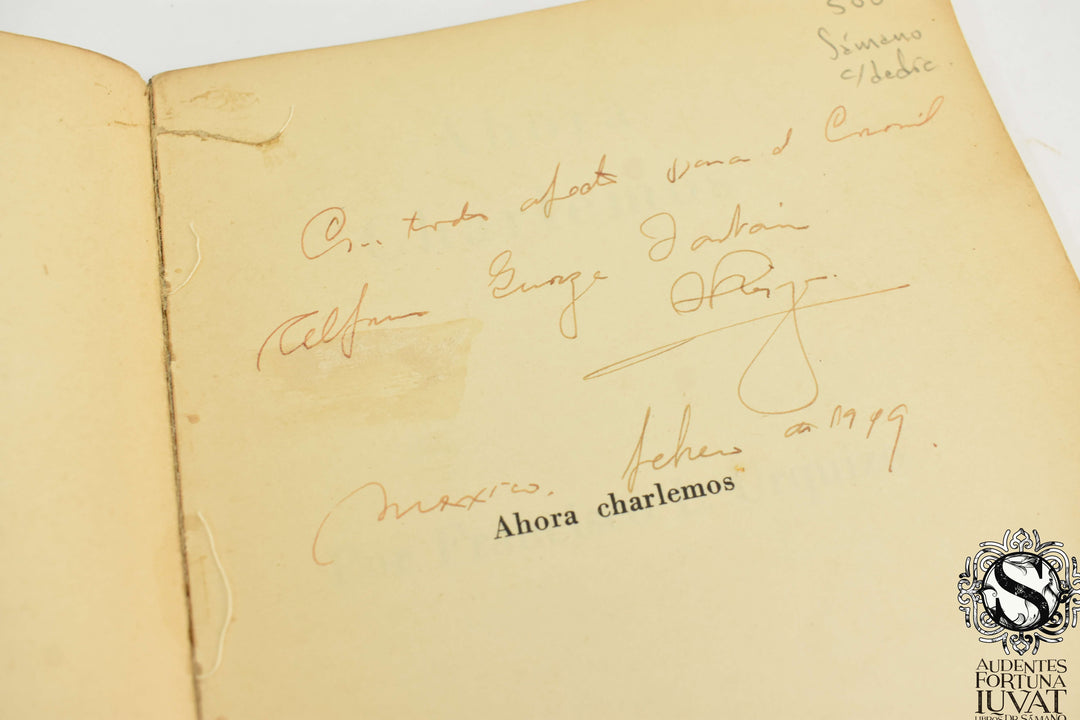 500
Sámano
c/dedic.
Con todo afecto para el Coronel
Alfonso Gurza
México, febrero de 1949.
Ahora charlemos
S
AUDENTES
FORTUNA
IUVAT
LIBROS DR. SÁMANO